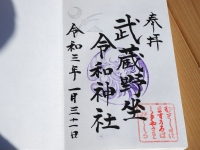 奉拝
武蔵野坐
令和神社
令和三年 一月三十一日